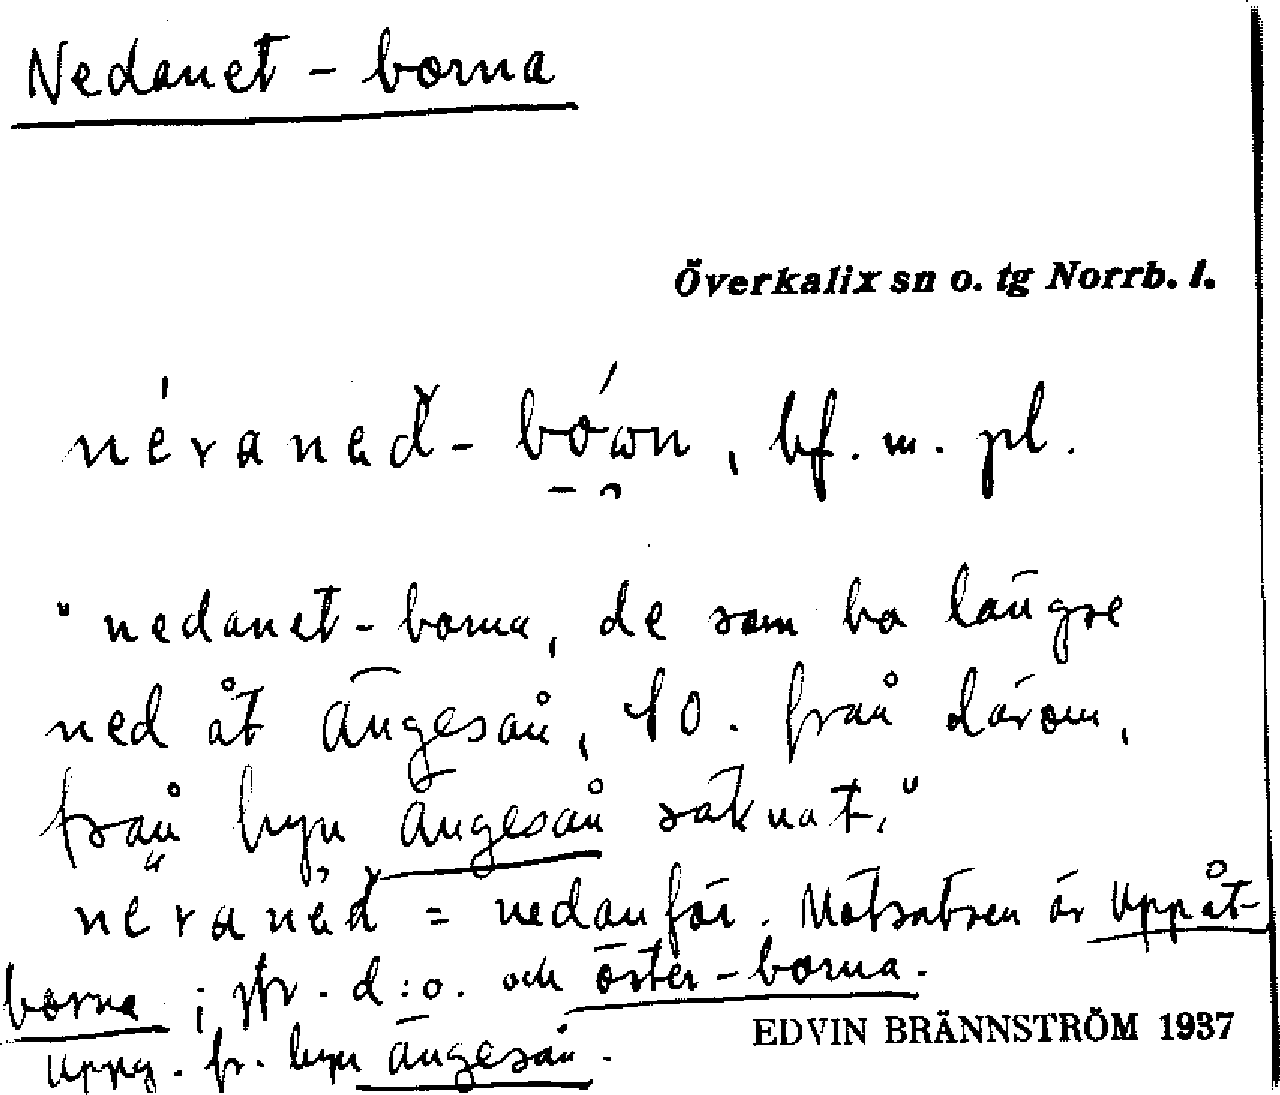 Nedanet-borna
Överkalix sn o. tg Norrb. l.
bf. m. pl.
"nedanet-borna, de som bo längre
ned åt Ängesån, fo. från därom,
från byn Ängesån räknat."
= nedanför. Motsatsen är Uppåt-
borna; jfr. d:o. och öster-borna.
Uppg. fr. byn Ängesån.
EDVIN BRÄNNSTRÖM 1937